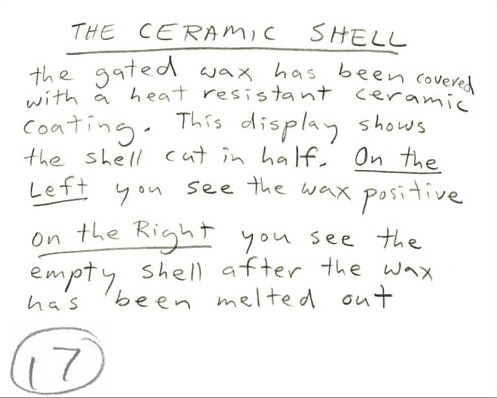 THE CERAMIC SHELL
the gated wax has been covered
with a heat resistant ceramic
coating. This display shows
the shell cut in half. On the
Left you see the wax positive
on the Right you see the
empty shell after the wax
has been melted out
17